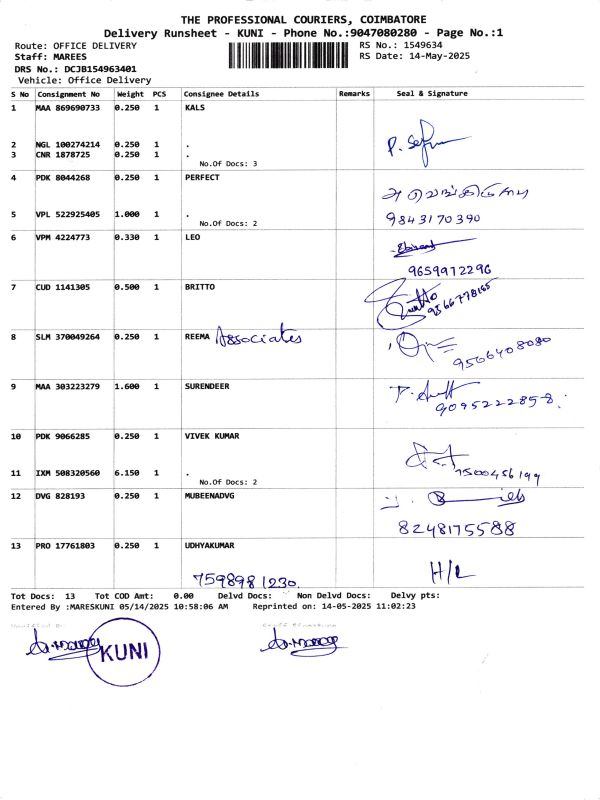 THE PROFESSIONAL COURIERS, COIMBATORE
Delivery Runsheet - KUNI - Phone No.:9047080280 - Page No.:1
Route: OFFICE DELIVERY RS No.: 1549634
Staff: MAREES RS Date: 14-May-2025
DRS No.: DCJB154963401
Vehicle: Office Delivery
S No Consignment No Weight PCS Consignee Details Remarks Seal & Signature
1 MAA 869690733 0.250 1 KALS
2 NGL 100274214 0.250 1 .
3 CNR 1878725 0.250 1 .
No.Of Docs: 3
4 PDK 8044268 0.250 1 PERFECT
5 VPL 522925405 1.000 1 . 9843170390
No.Of Docs: 2
6 VPM 4224773 0.330 1 LEO
9659912296
7 CUD 1141305 0.500 1 BRITTO
9566778165
8 SLM 370049264 0.250 1 REEMA Associates
9506408080
9 MAA 303223279 1.600 1 SURENDEER
9095222858
10 PDK 9066285 0.250 1 VIVEK KUMAR
11 IXM 508320560 6.150 1 . 7500456199
No.Of Docs: 2
12 DVG 828193 0.250 1 MUBEENADVG
8248175588
13 PRO 17761803 0.250 1 UDHYAKUMAR
7598981230 H/L
Tot Docs: 13 Tot COD Amt: 0.00 Delvd Docs: Non Delvd Docs: Delvy pts:
Entered By :MARESKUNI 05/14/2025 10:58:06 AM Reprinted on: 14-05-2025 11:02:23
KUNI